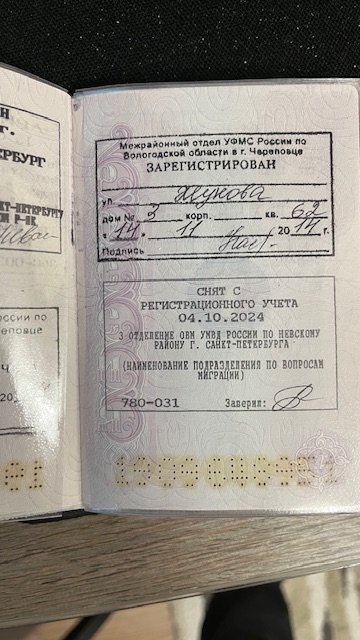 Н
Г.
ЕРБУРГ
КТ-ПЕТЕРБУРГУ
Межрайонный отдел УФМС России по
Вологодской области в г. Череповце
ЗАРЕГИСТРИРОВАН
ул. Жукова
дом № 3 корп. кв. 62
"14" 11 2014 г.
Подпись
оссии по
реповце
20
СНЯТ С
РЕГИСТРАЦИОННОГО УЧЕТА
04.10.2024
3 ОТДЕЛЕНИЕ ОВМ УМВД РОССИИ ПО НЕВСКОМУ
РАЙОНУ Г. САНКТ-ПЕТЕРБУРГА
(НАИМЕНОВАНИЕ ПОДРАЗДЕЛЕНИЯ ПО ВОПРОСАМ
МИГРАЦИИ)
780-031 Заверил: